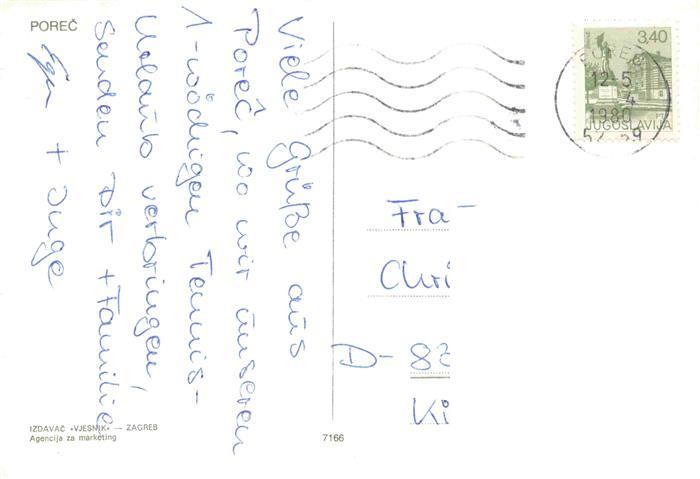 POREČ
Viele Grüße aus
Poreč, wo wir unseren
1-wöchigen Tennis-
Urlaub verbringen,
senden Dir + Familie
+ Inge
3,40
POREČ
12-5
1980
JUGOSLAVIJA
Fra
Chri
D-
Ki
IZDAVAČ «VJESNIK» — ZAGREB
Agencija za marketing
7166